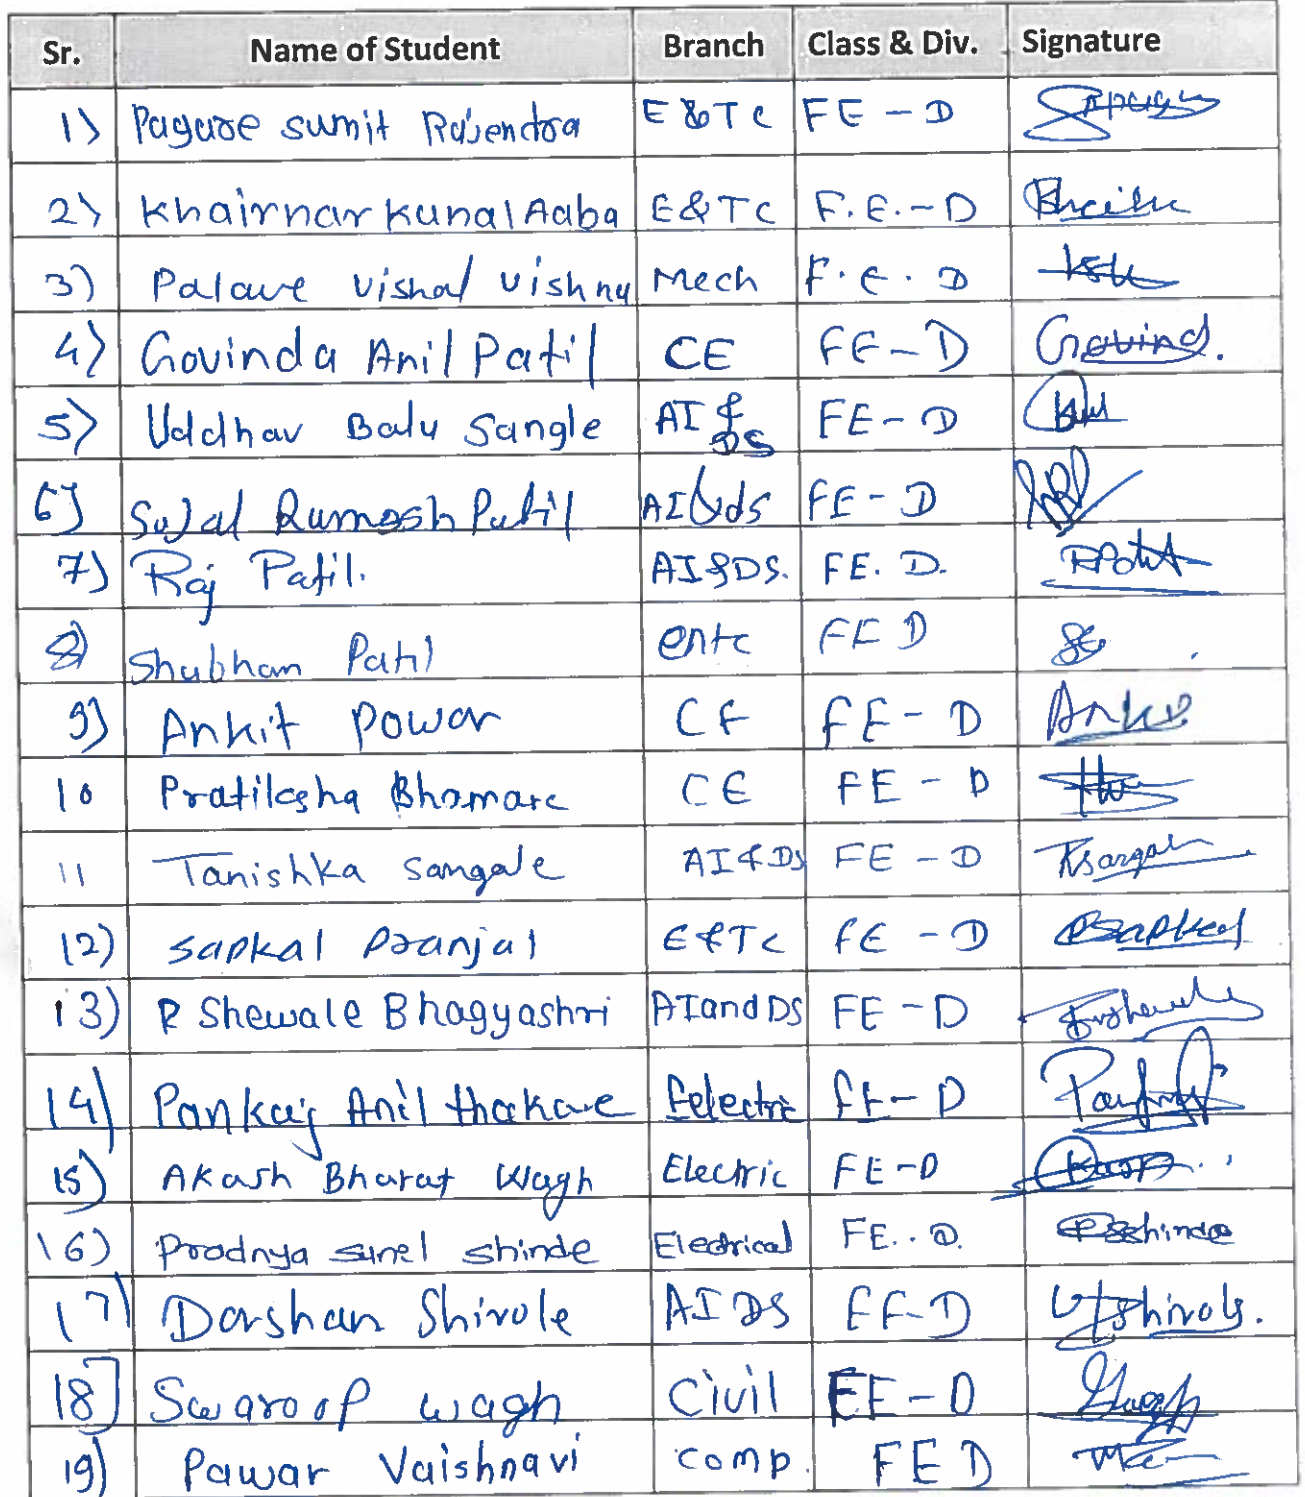 Sr. Name of Student Branch Class & Div. Signature
1) Pagare sumit Rajendra E&TC FE - D
2) Khairnar Kunal Aaba E&TC F.E.-D
3) Palave vishal vishnu Mech F.E.D
4) Govinda Anil Patil CE FE-D Govind.
5) Uddhav Balu Sangle AI & DS FE-D
6] Sujal Ramesh Patil AI&ds FE-D
7) Raj Patil. AI&DS. FE. D.
8) Shubham Patil entc FE D
9) Ankit Powar CE FE-D
10 Pratiksha Bhamare CE FE - D
11 Tanishka sangale AI&DS FE - D
12) sapkal Pranjal E&TC FE - D
13) R Shewale Bhagyashri AIandDS FE-D
14) Pankaj Anil thakare Eelectric FE-D
15) Akash Bharat Wagh Electric FE-D
16) Pradnya sunel shinde Electrical FE..D. shinde
17) Darshan Shirole AIDS FE-D Shirole.
18] Swaroop wagh Civil FE-D
19) Pawar Vaishnavi comp. FE D